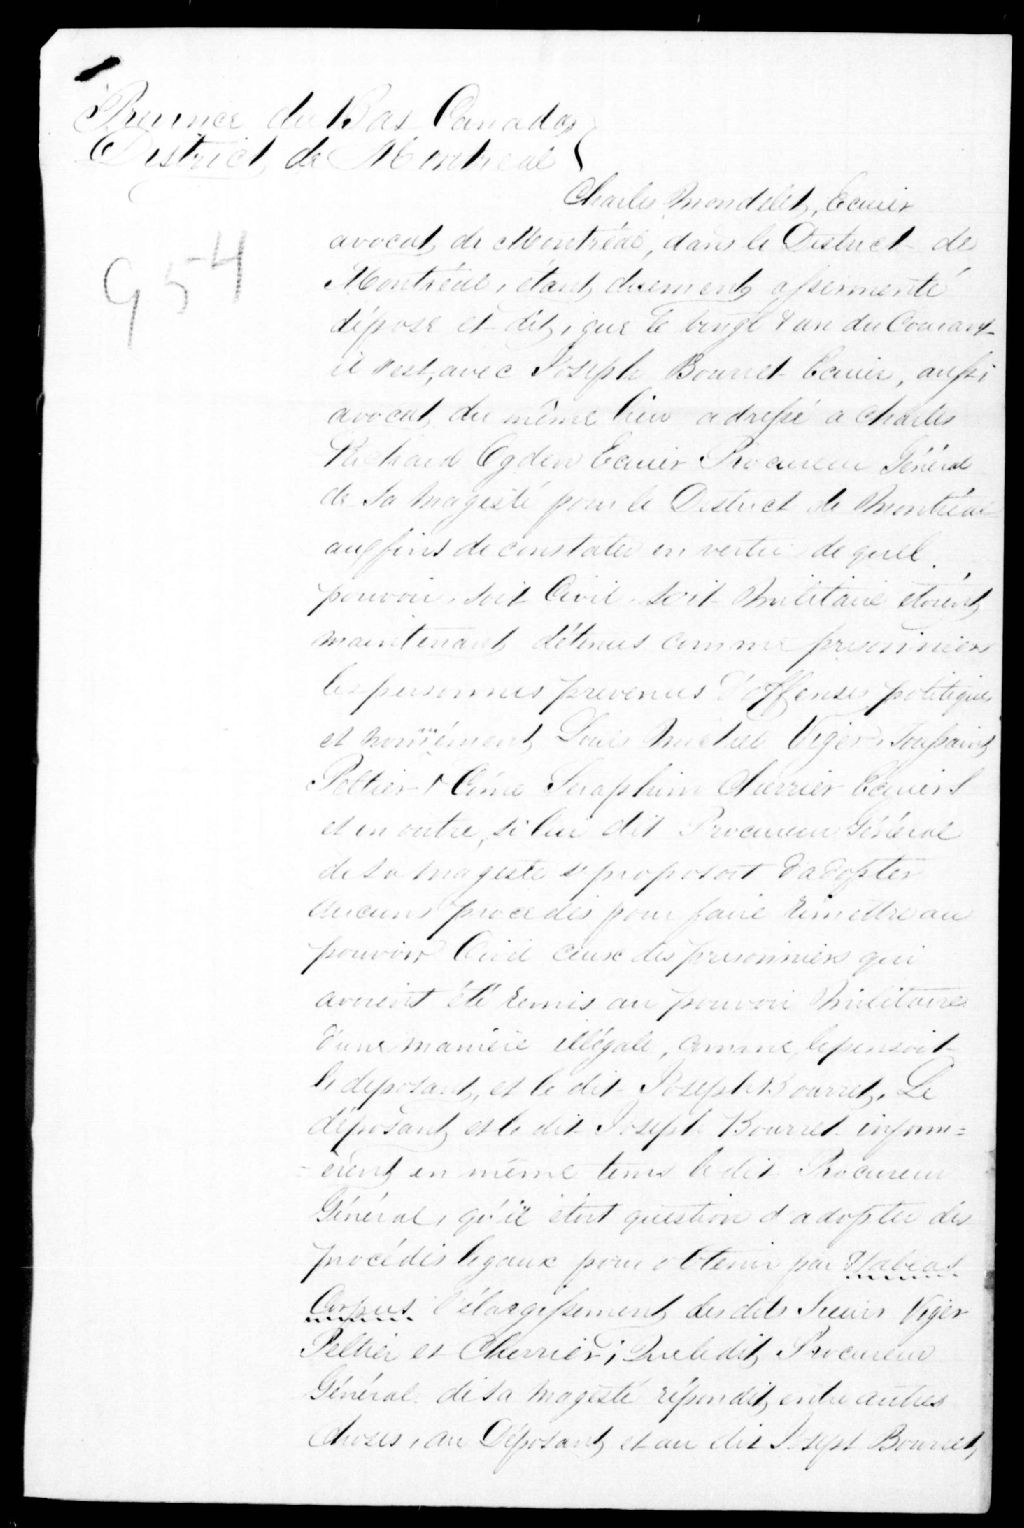 Province du Bas Canada
District de Montréal
Charles Mondelet, Ecuier
954
avocat de Montréal, dans le District de
Montréal, étant duement assermenté
dépose et dit, que le vingt & un du Courant
il s'est, avec Joseph Bourret Ecuier, aussi
avocat du même lieu adressé a Charles
Richard Ogden Ecuier Procureur Général
de Sa Magesté pour le District de Montréal
aux fins de constater en vertu de quel
pouvoir, soit Civil, soit Militaire étoient
maintenant détenus comme prisonniers
les personnes prevenues d'offenses politiques
et nommément Louis Michel Viger, Toussaint
Peltier & Côme Séraphim Cherrier Ecuiers
et en outre, si lui dit Procureur Général
de Sa Magesté se proposoit d'adopter
aucuns procedés pour faire remettre au
pouvoir Civil ceux des prisonniers qui
avoient été remis au pouvoir Militaire
d'une manière illégale, comme le pensoit
le deposant, et le dit Joseph Bourret. Le
déposant et le dit Joseph Bourret inform=
=èrent en même tems le dit Procureur
Général, qu'il étoit question d'adopter des
procédés légaux pour obtenir par Habeas
Corpus l'élargissement des dits Sieurs Viger
Peltier et Cherrier; Que le dit Procureur
Général de Sa Magesté répondit, entre autres
choses, au Déposant et au dit Joseph Bourret,